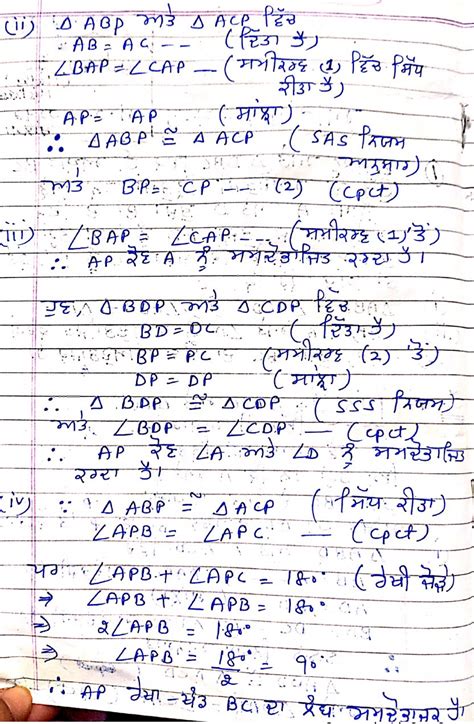 (ii) Δ ABP ਅਤੇ Δ ACP ਵਿੱਚ
AB = AC -- (ਦਿੱਤਾ ਹੈ)
∠BAP = ∠CAP — (ਸਮੀਕਰਣ (1) ਵਿੱਚ ਸਿੱਧ
ਕੀਤਾ ਹੈ)
AP = AP (ਸਾਂਝਾ)
∴ ΔABP ≅ ΔACP (SAS ਨਿਯਮ
ਅਨੁਸਾਰ)
ਅਤੇ BP = CP -- (2) (CPCT)
(iii) ∠BAP = ∠CAP -- (ਸਮੀਕਰਣ (1) ਤੋਂ)
∴ AP ਕੋਣ A ਨੂੰ ਸਮਦੋਭਾਜਿਤ ਕਰਦਾ ਹੈ।
ਹੁਣ, Δ BDP ਅਤੇ Δ CDP ਵਿੱਚ
BD = DC (ਦਿੱਤਾ ਹੈ)
BP = PC (ਸਮੀਕਰਣ (2) ਤੋਂ)
DP = DP (ਸਾਂਝਾ)
∴ Δ BDP ≅ Δ CDP (SSS ਨਿਯਮ)
ਅਤੇ ∠BDP = ∠CDP — (CPCT)
∴ AP ਕੋਣ ∠A ਅਤੇ ∠D ਨੂੰ ਸਮਦੋਭਾਜਿਤ
ਕਰਦਾ ਹੈ।
(iv) ∵ Δ ABP ≅ Δ ACP (ਸਿੱਧ ਕੀਤਾ)
∠APB = ∠APC — (CPCT)
ਪਰ ∠APB + ∠APC = 180° (ਰੇਖੀ ਜੋੜੇ)
⇒ ∠APB + ∠APB = 180°
⇒ 2∠APB = 180°
⇒ ∠APB = 180°/2 = 90°
∴ AP ਰੇਖਾ-ਖੰਡ BC ਦਾ ਲੰਬ ਸਮਦੋਭਾਜਕ ਹੈ।